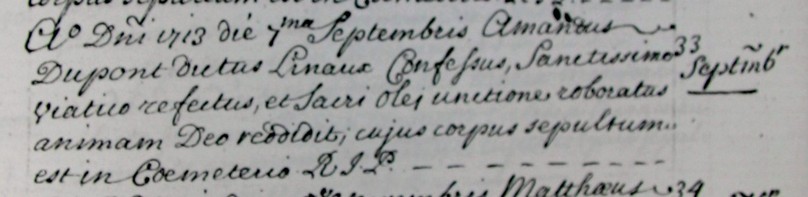 corpus sepultum est in
Aº Dñi 1713 die 7ma Septembris Amandus
Dupont dictus Linaux Confessus, Sanctissimo 33
Septm̄br
Viatico refectus, et Sacri Olei unctione roboratus
animam Deo reddidit, cujus corpus sepultum
est in Coemeterio R.I.P.
Matthæus 34